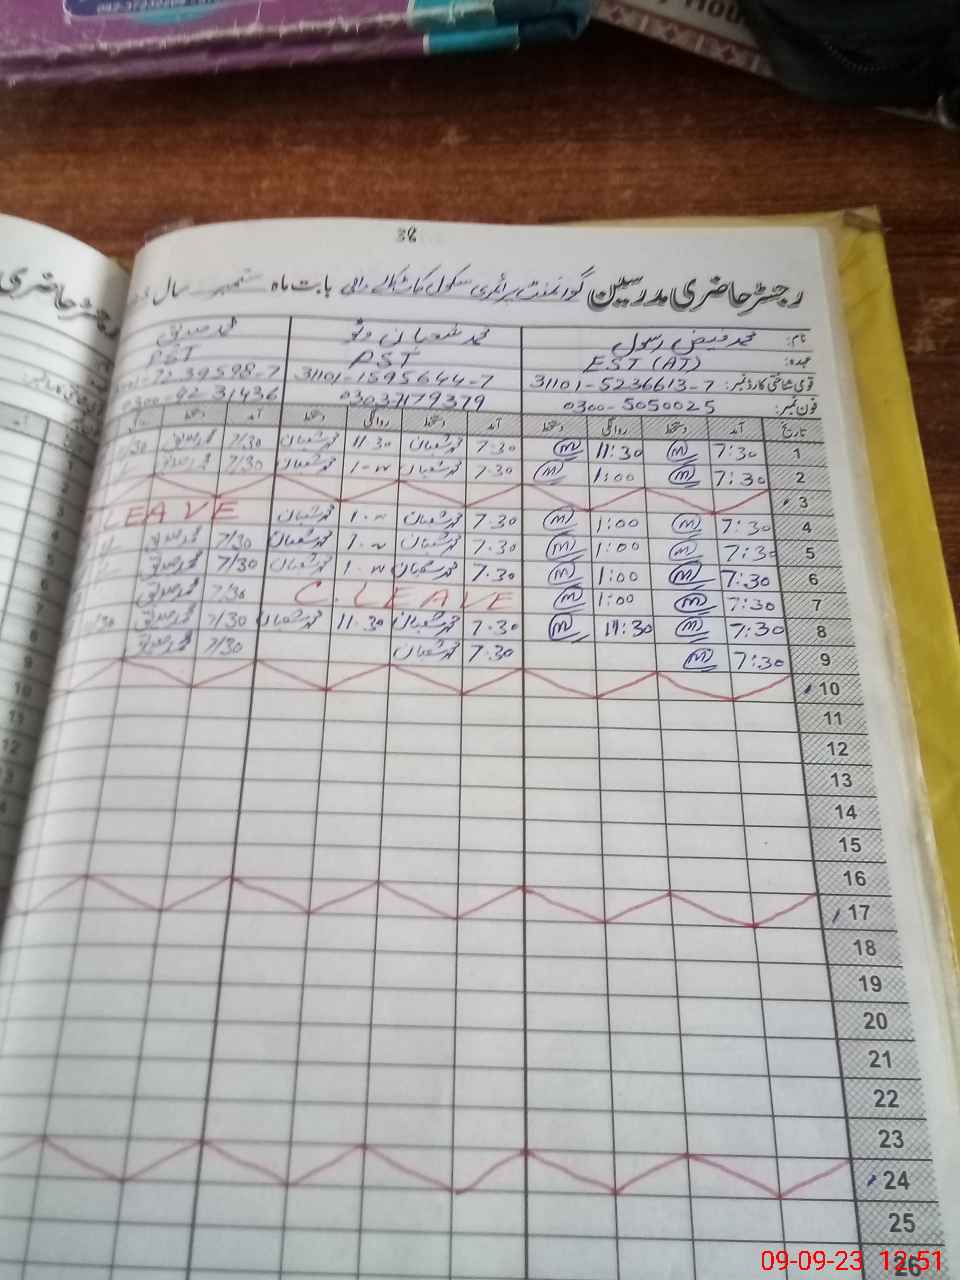 38
رجسٹر حاضری مدرسین گورنمنٹ پرائمری سکول والی بابت ماہ ستمبر سال
رجسٹر حاضری
نام: محمد فیض رسول محمد شعبان محمد صدیق
عہدہ: EST (AT) PST PST
قومی شناختی کارڈ نمبر: 31101-5236613-7 31101-1595644-7 7239598-7
فون نمبر: 0300-5050025 03037179379 0300-9231436
تاریخ آمد دستخط روانگی دستخط آمد دستخط روانگی دستخط آمد دستخط
1 7:30 m 11:30 m 7.30 محمد شعبان 11.30 محمد شعبان 7/30 محمد صدیق 30
2 7:30 m 1:00 m 7.30 محمد شعبان 1.00 محمد شعبان 7/30 محمد صدیق
3
4 7:30 m 1:00 m 7.30 محمد شعبان 1.00 محمد شعبان LEAVE
5 7:30 m 1:00 m 7.30 محمد شعبان 1.00 محمد شعبان 7/30 محمد صدیق
6 7:30 m 1:00 m 7.30 محمد شعبان 1.00 محمد شعبان 7/30 محمد صدیق
7 7:30 m 1:00 m C.LEAVE 7/30 محمد صدیق
8 7:30 m 11:30 m 7.30 محمد شعبان 11.30 محمد شعبان 7/30 محمد صدیق
9 7:30 m 7.30 محمد شعبان 7/30 محمد صدیق
10
11
12
13
14
15
16
17
18
19
20
21
22
23
24
25
26
09-09-23 12:51